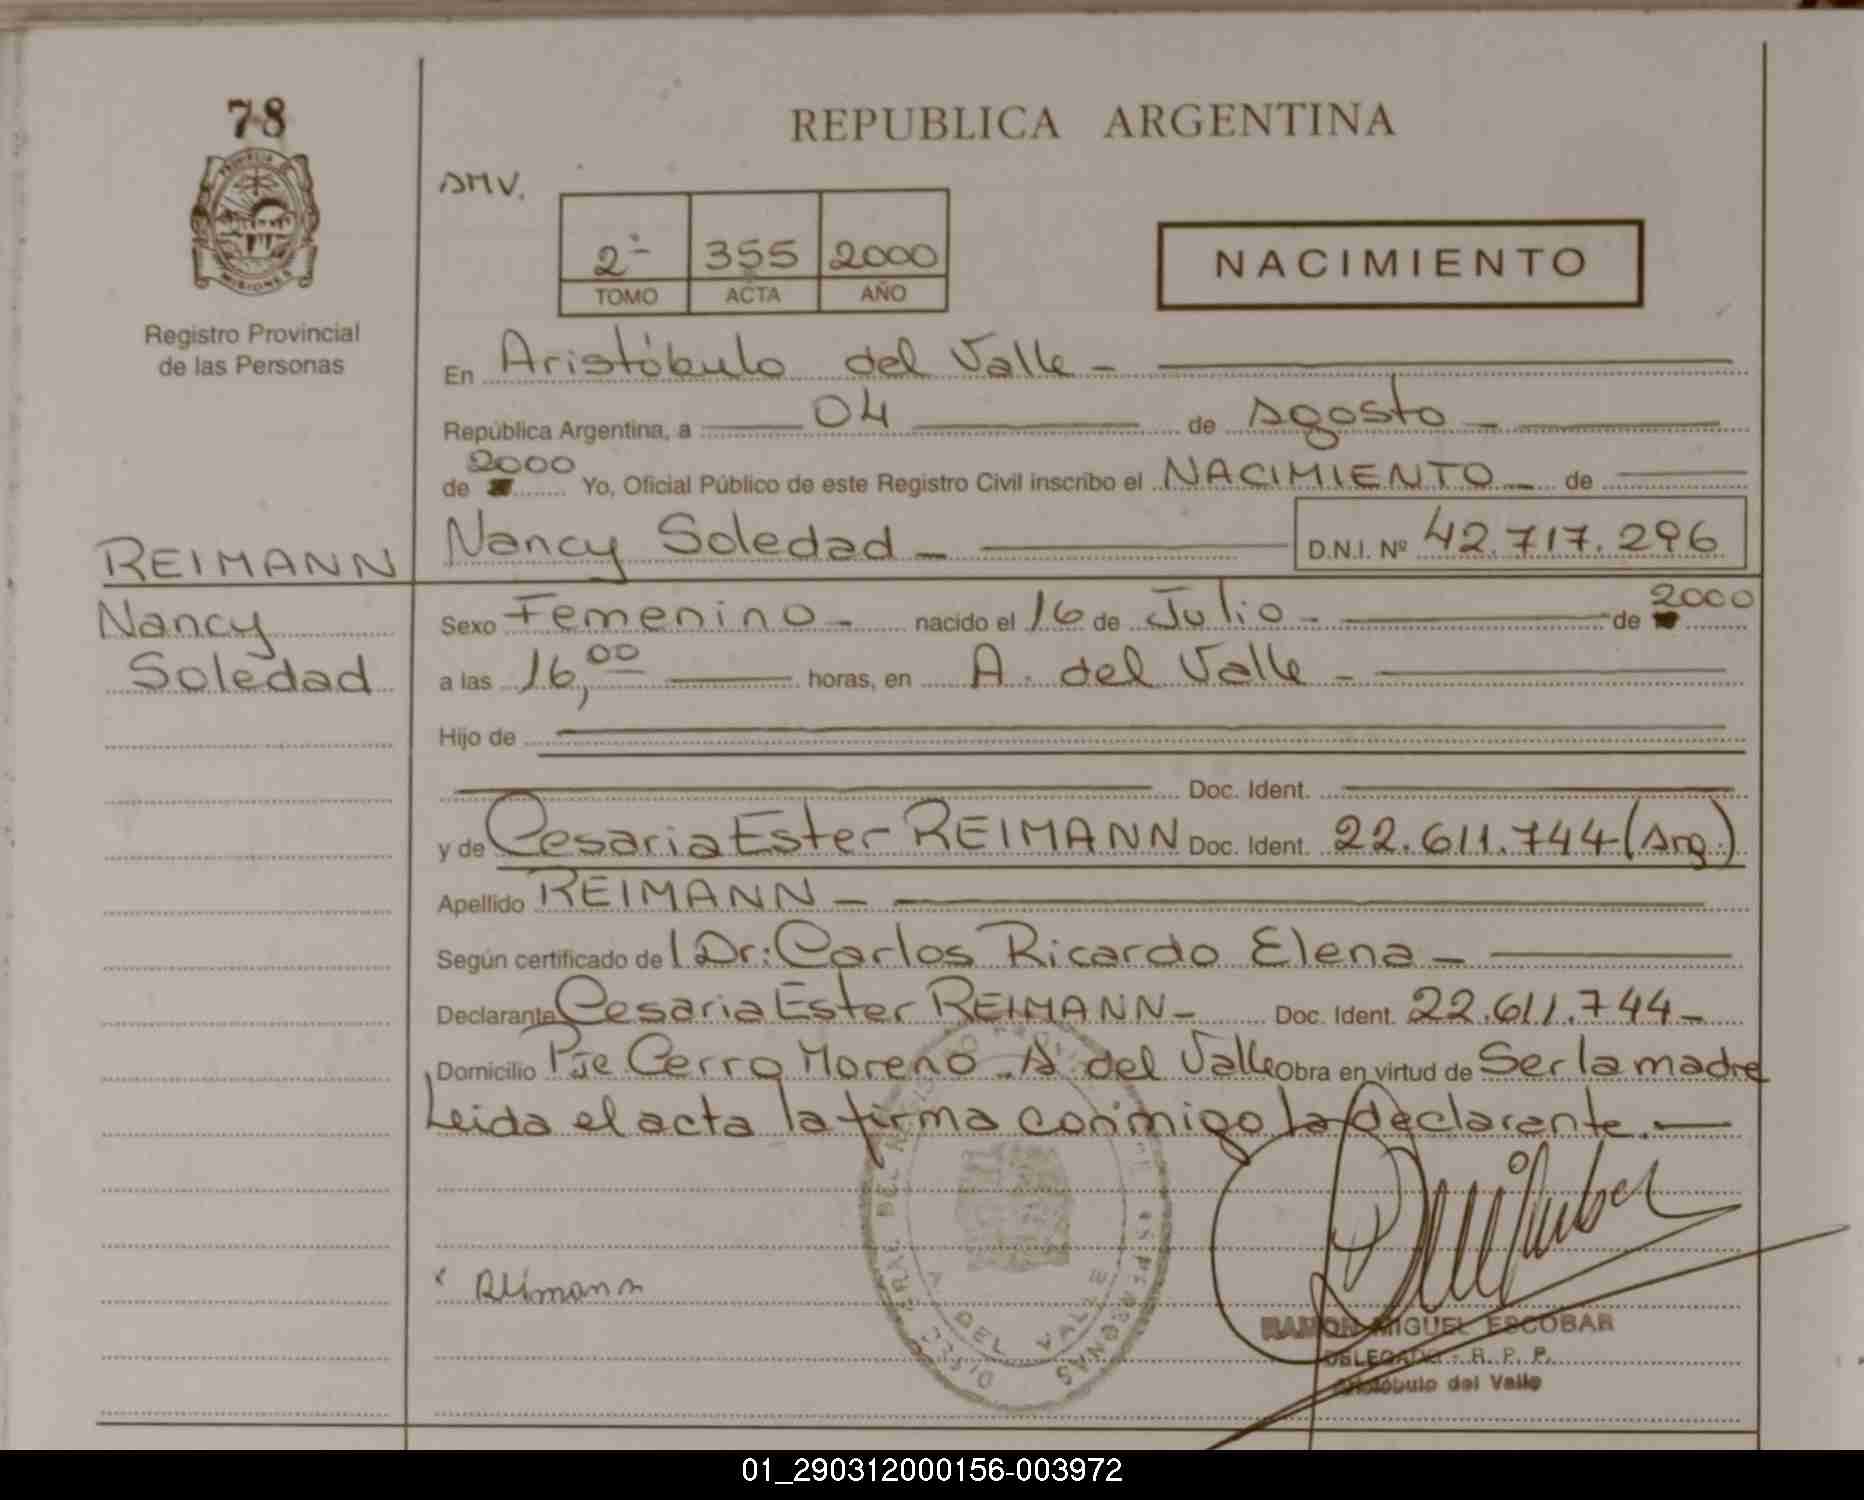 78
REPUBLICA ARGENTINA
PROVINCIA DE
MISIONES
Registro Provincial
de las Personas
2ª 355 2000
TOMO ACTA AÑO
NACIMIENTO
En Aristóbulo del Valle -
República Argentina, a 04 de Agosto -
2000
de Yo, Oficial Público de este Registro Civil inscribo el NACIMIENTO - de
REIMANN
Nancy
Soledad
Nancy Soledad - D.N.I. Nº 42.717.296
Sexo Femenino - nacido el 16 de Julio - de 2000
a las 16,00 horas, en A. del Valle -
Hijo de
Doc. Ident.
y de Cesaria Ester REIMANN Doc. Ident. 22.611.744 (Arg.)
Apellido REIMANN -
Según certificado del Dr: Carlos Ricardo Elena -
Declarante Cesaria Ester REIMANN - Doc. Ident. 22.611.744 -
Domicilio Pje Cerro Moreno - A. del Valle Obra en virtud de Ser la madre
Leida el acta la firma conmigo la declarante. -
A. DEL VALLE
x Reimann
RAMON MIGUEL ESCOBAR
DELEGADO - R. P. P.
Aristóbulo del Valle
01_290312000156-003972